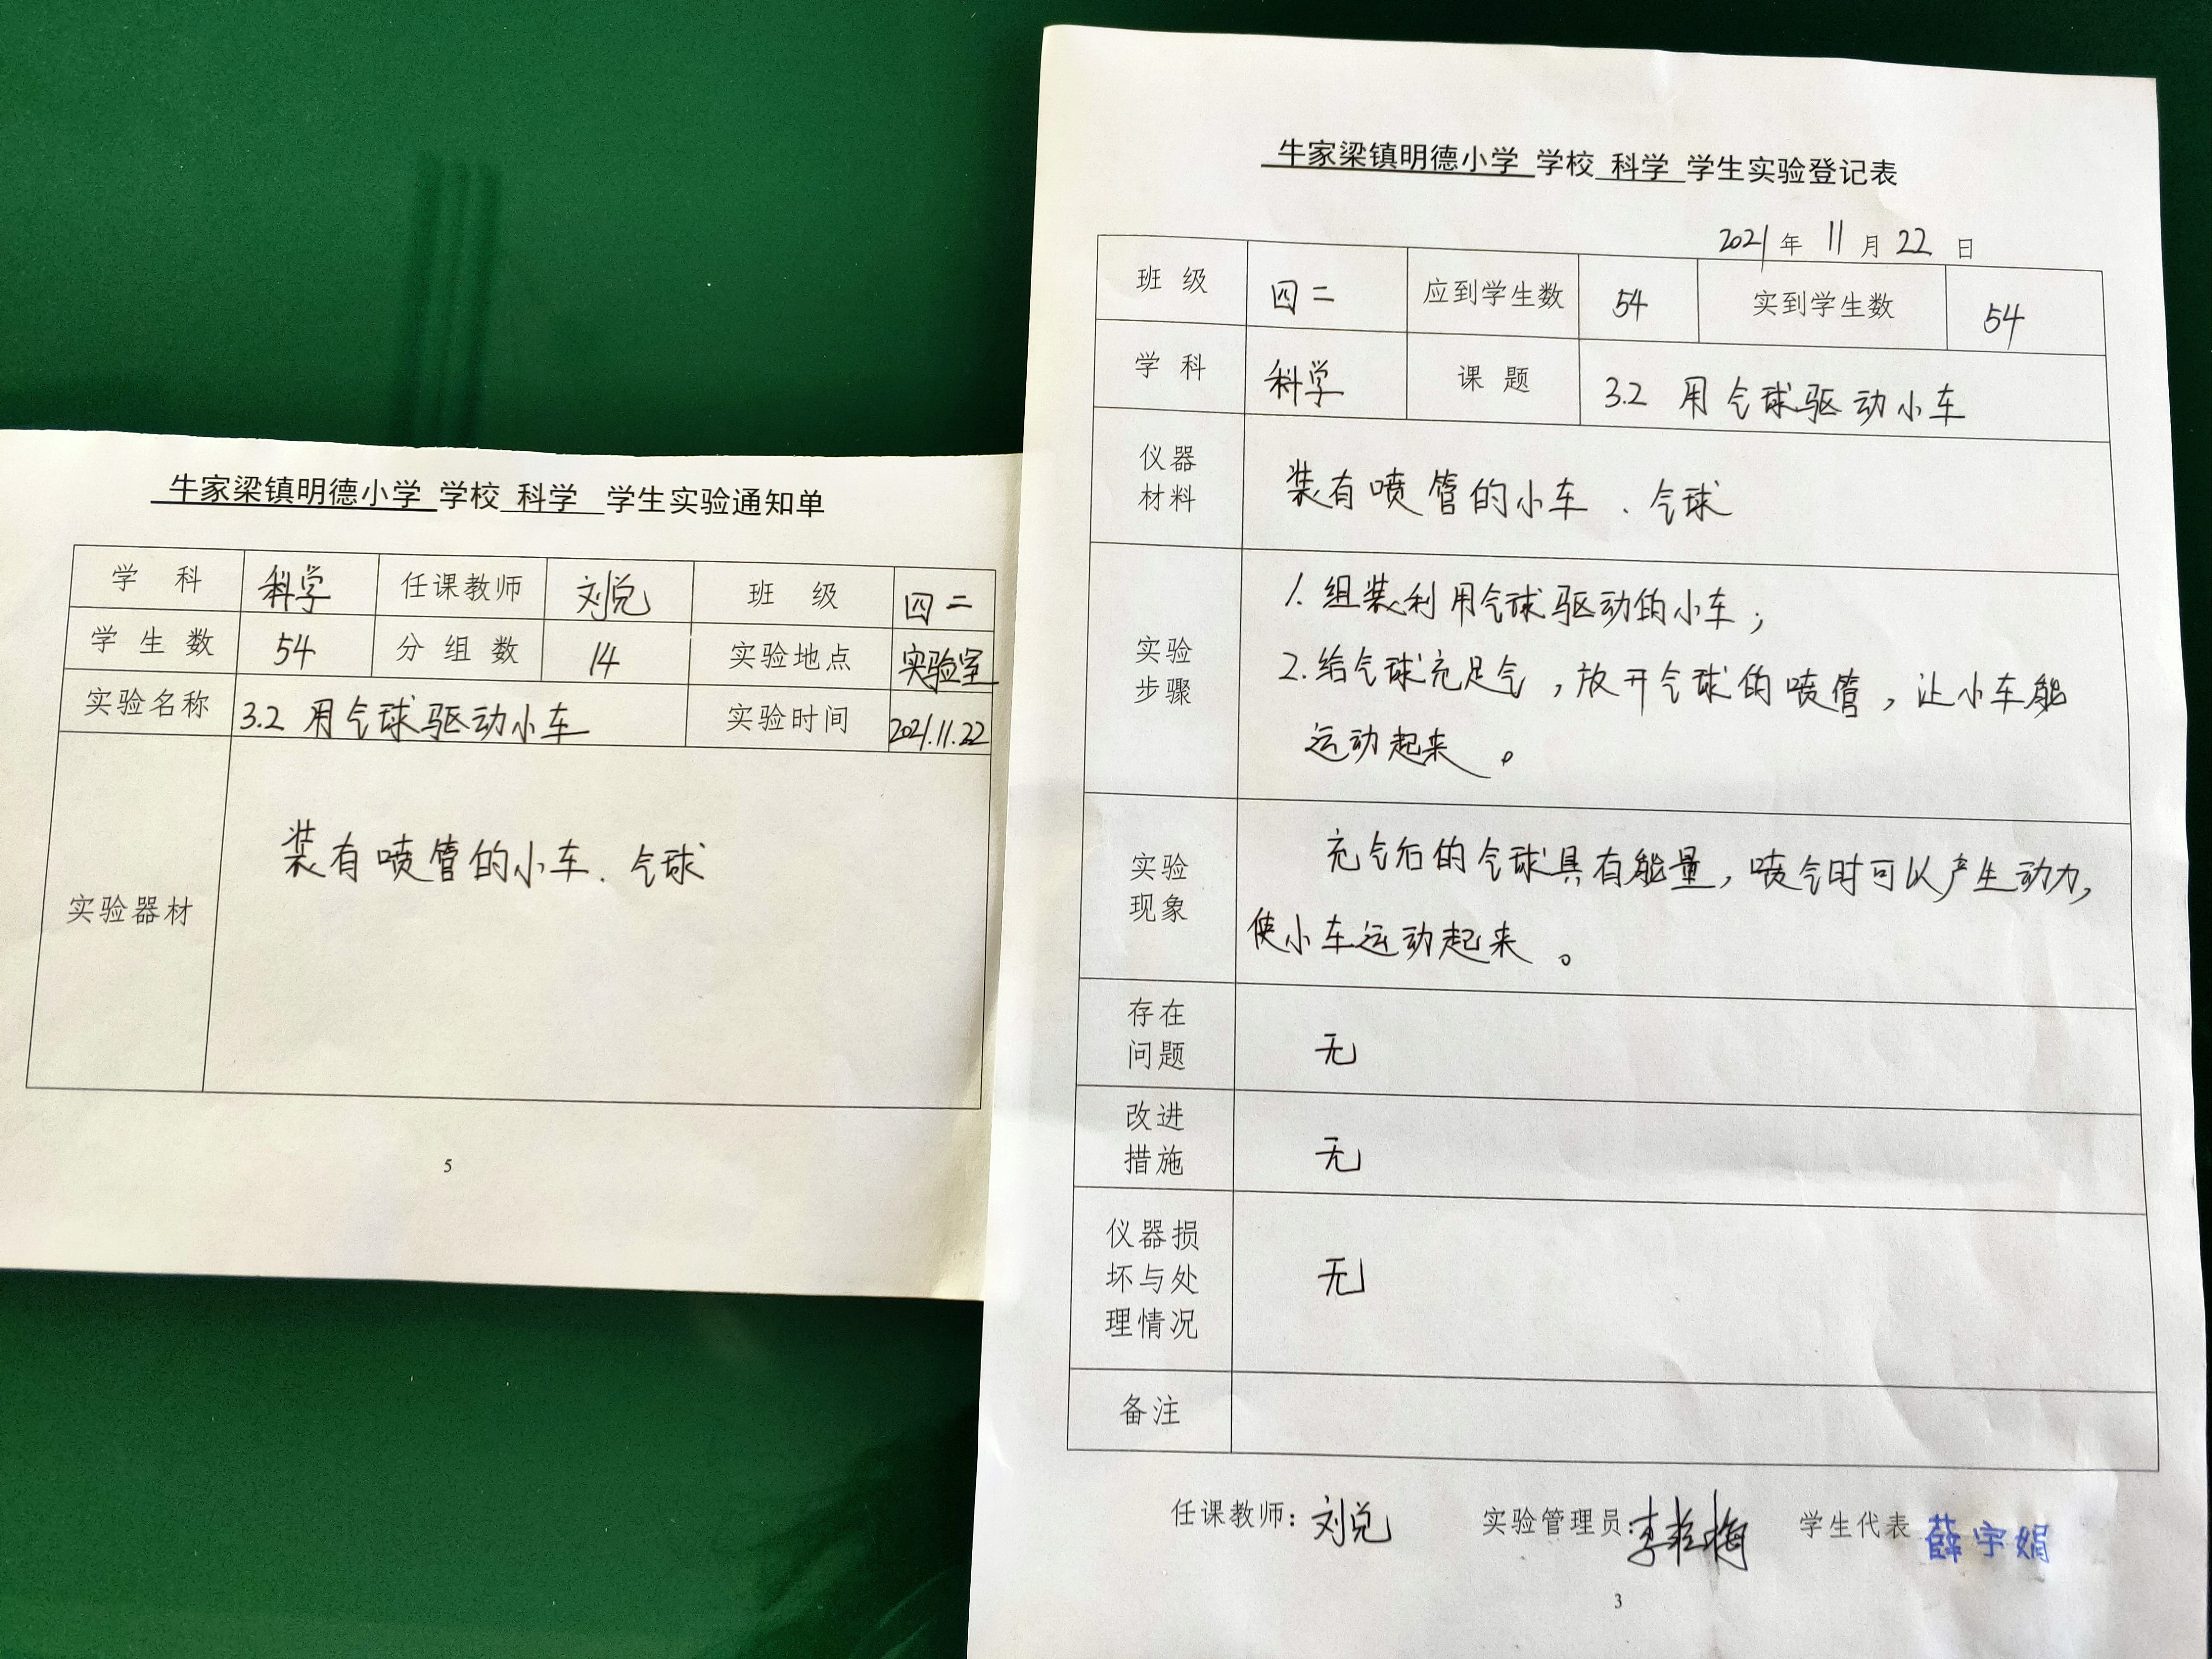 牛家梁镇明德小学 学校 科学 学生实验通知单
学 科 科学 任课教师 刘兑 班 级 四二
学 生 数 54 分 组 数 14 实验地点 实验室
实验名称 3.2 用气球驱动小车 实验时间 2021.11.22
实验器材 装有喷管的小车、气球
5
牛家梁镇明德小学 学校 科学 学生实验登记表
2021 年 11 月 22 日
班 级 四二 应到学生数 54 实到学生数 54
学 科 科学 课 题 3.2 用气球驱动小车
仪器
材料
装有喷管的小车、气球
实验
步骤
1. 组装利用气球驱动的小车；
2. 给气球充足气，放开气球的喷管，让小车能
运动起来。
实验
现象
充气后的气球具有能量，喷气时可以产生动力，
使小车运动起来。
存在
问题
无
改进
措施
无
仪器损
坏与处
理情况
无
备注
任课教师：刘兑 实验管理员： 学生代表 薛宇娟
3